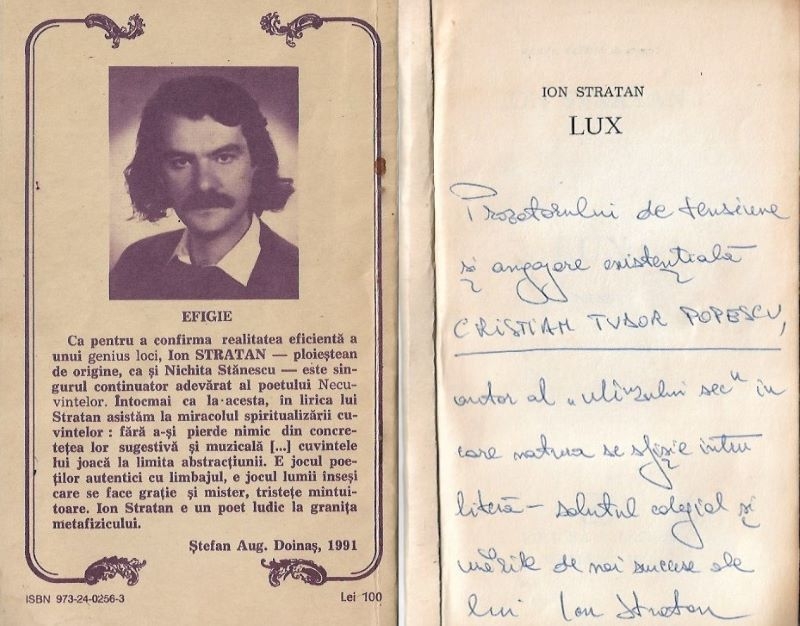 EFIGIE
Ca pentru a confirma realitatea eficientă a
unui genius loci, Ion STRATAN — ploieștean
de origine, ca și Nichita Stănescu — este sin-
gurul continuator adevărat al poetului Necu-
vintelor. Întocmai ca la acesta, în lirica lui
Stratan asistăm la miracolul spiritualizării cu-
vintelor : fără a-și pierde nimic din concre-
tețea lor sugestivă și muzicală [...] cuvintele
lui joacă la limita abstracțiunii. E jocul poe-
ților autentici cu limbajul, e jocul lumii înseși
care se face grație și mister, tristețe mintui-
toare. Ion Stratan e un poet ludic la granița
metafizicului.
Ștefan Aug. Doinaș, 1991
ISBN 973-24-0256-3
Lei 100
ION STRATAN
LUX
Prozatorului de tensiune
și angajare existențială
CRISTIAN TUDOR POPESCU,
autor al „ sec" în
care natura se sfîșie întru
literă — salutul colegial și
urările de noi succese ale
lui Ion Stratan